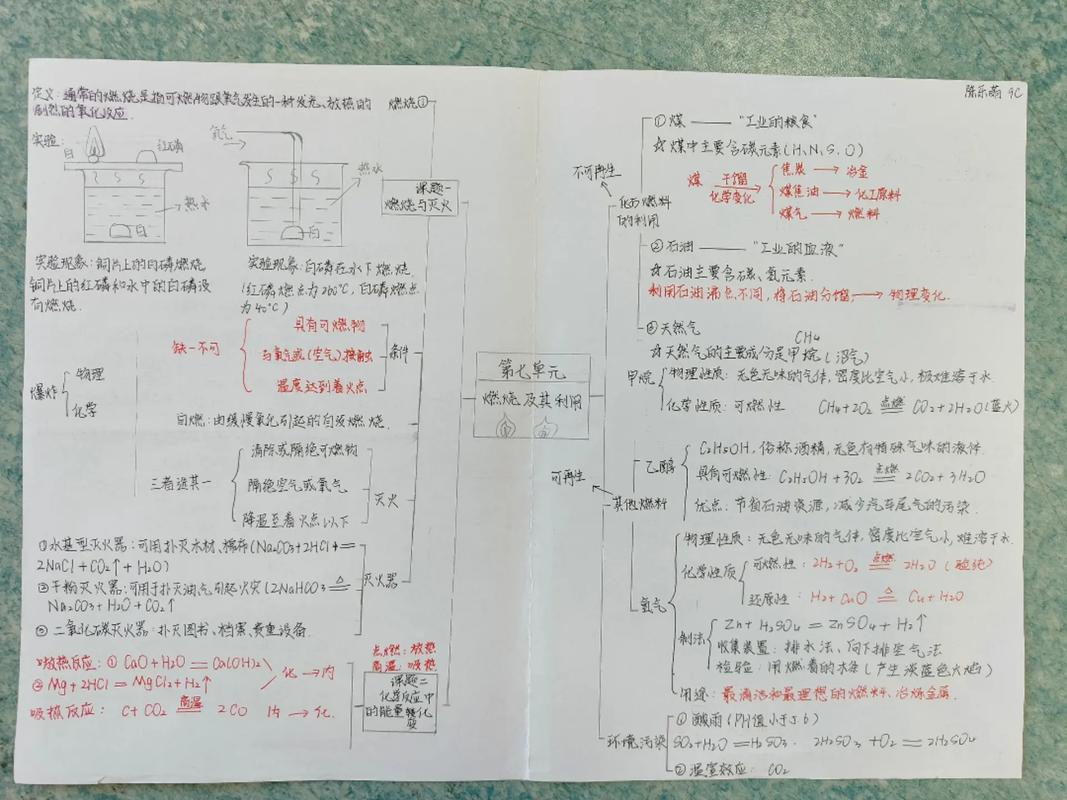 陈乐萌 9C
定义：通常的燃烧是指可燃物跟氧气发生的一种发光、放热的
剧烈的氧化反应.
燃烧①
实验：
白
红磷
热水
白
氧气
热水
白
课题一
燃烧与灭火
实验现象：铜片上的白磷燃烧
铜片上的红磷和水中的白磷没
有燃烧.
实验现象：白磷在水下燃烧.
(红磷燃点为260℃, 白磷燃点
为40℃)
爆炸
物理
化学
缺一不可
具有可燃物
与氧气或(空气)接触
温度达到着火点
条件
自燃：由缓慢氧化引起的自发燃烧.
三者选其一
清除或隔绝可燃物
隔绝空气或氧气
降温至着火点以下
灭火
①水基型灭火器：可用扑灭木材、棉布(Na₂CO₃+2HCl==
2NaCl+CO₂↑+H₂O)
②干粉灭火器：可用于扑灭油、气引起火灾(2NaHCO₃ △==
Na₂CO₃+H₂O+CO₂↑
③二氧化碳灭火器：扑灭图书、档案、贵重设备.
灭火器
点燃：放热
高温：吸热
放热反应：① CaO+H₂O==Ca(OH)₂
② Mg+2HCl==MgCl₂+H₂↑
化→内
吸热反应： C+CO₂ 高温== 2CO 内→化.
课题二
化学反应中
的能量变化
第七单元
燃烧及其利用
不可再生
化石燃料
的利用
①煤——"工业的粮食"
☆煤中主要含碳元素(H、N、S、O)
煤 干馏
化学变化
焦炭→冶金
煤焦油→化工原料
煤气→燃料
②石油——"工业的血液"
☆石油主要含碳、氢元素.
利用石油沸点不同，将石油分馏,→物理变化.
③天然气
CH₄
☆天然气的主要成分是甲烷(沼气)
甲烷
物理性质：无色无味的气体,密度比空气小,极难溶于水
化学性质：可燃性 CH₄+2O₂ 点燃== CO₂+2H₂O(蓝火)
可再生
其他燃料
乙醇
C₂H₅OH, 俗称酒精,无色有特殊气味的液体.
具有可燃性：C₂H₅OH+3O₂ 点燃== 2CO₂+3H₂O
优点：节省石油资源,减少汽车尾气的污染.
氢气
物理性质：无色无味的气体,密度比空气小,难溶于水.
化学性质
可燃性：2H₂+O₂ 点燃== 2H₂O (验纯)
还原性：H₂+CuO △== Cu+H₂O
制法
Zn+H₂SO₄==ZnSO₄+H₂↑
收集装置：排水法、向下排空气法
检验：用燃着的木条(产生淡蓝色火焰)
用途：最清洁和最理想的燃料、冶炼金属.
环境污染
①酸雨(PH值小于5.6)
SO₂+H₂O==H₂SO₃. 2H₂SO₃+O₂==2H₂SO₄
②温室效应：CO₂